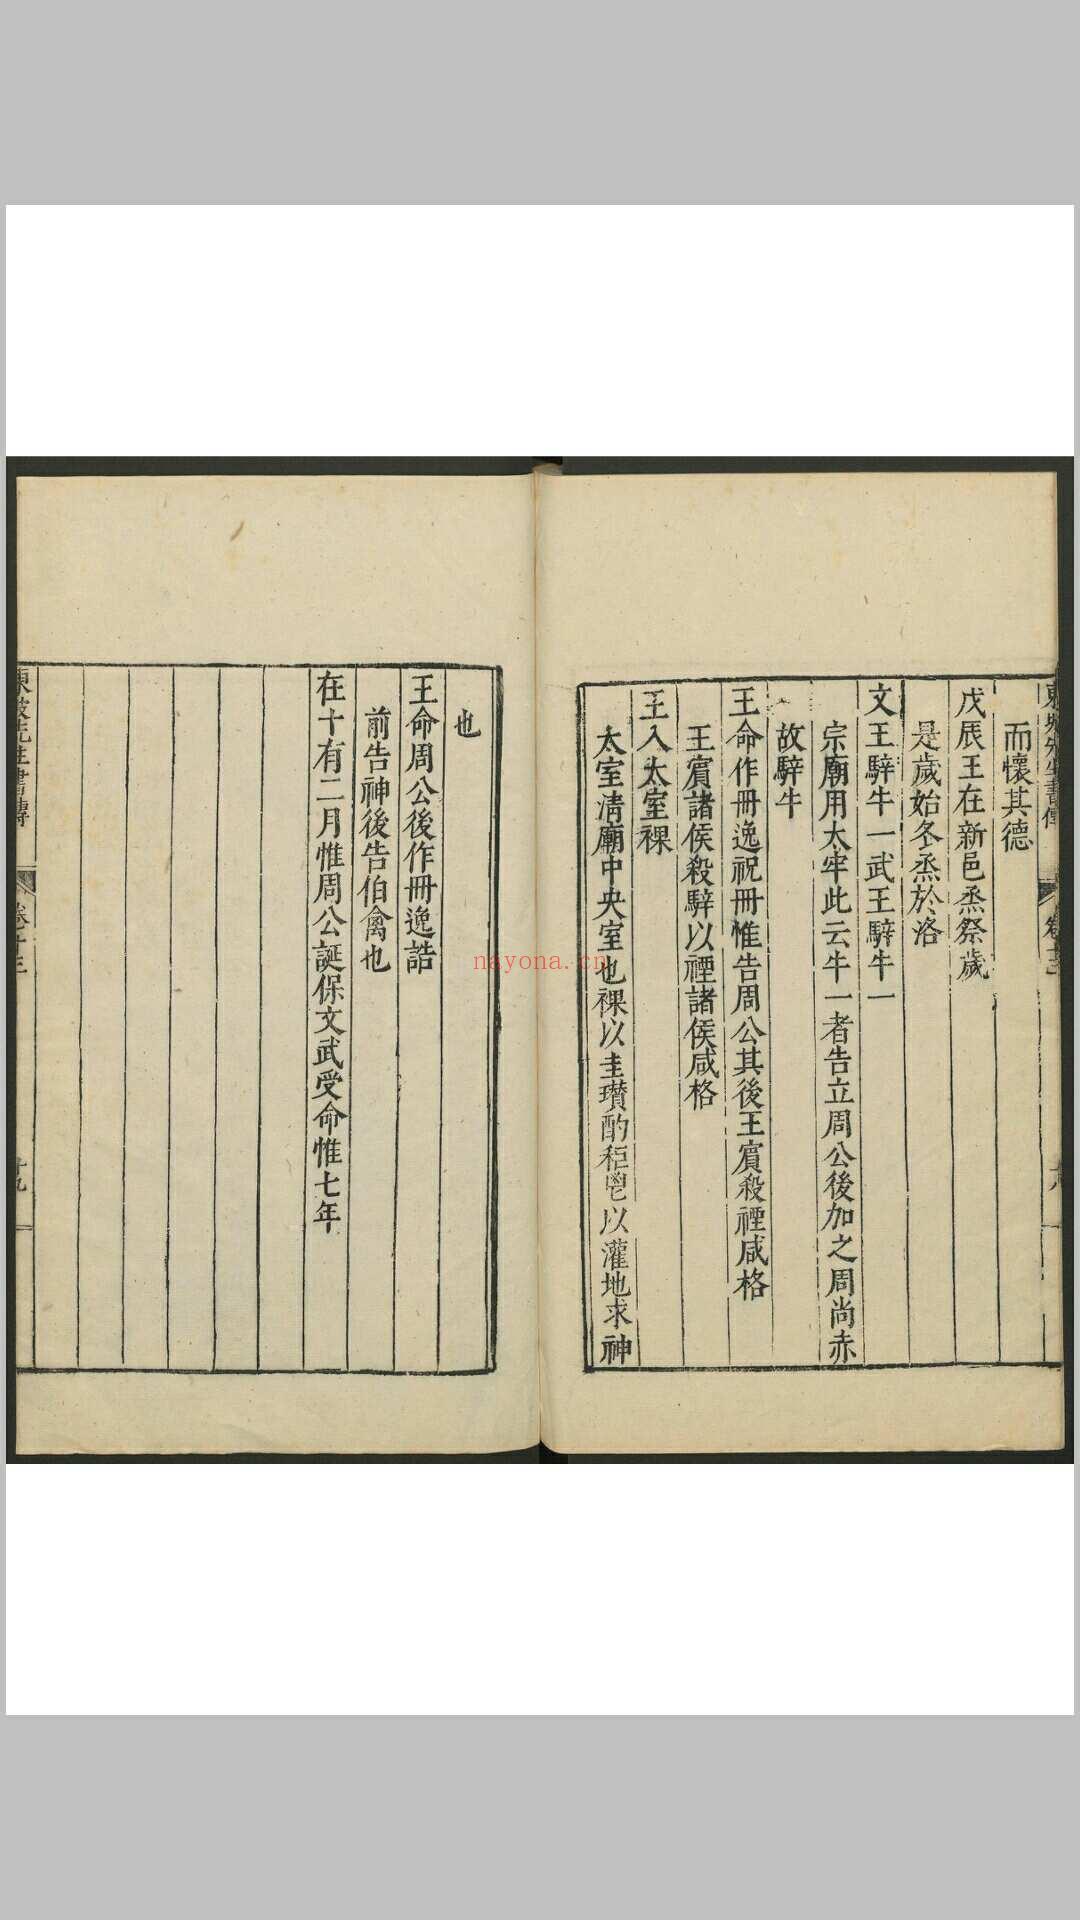 東坡先生書傳
卷十三
十八
而懷其德
戊辰王在新邑烝祭歲
是歲始冬烝於洛
文王騂牛一武王騂牛一
宗廟用太牢此云牛一者告立周公後加之周尚赤
故騂牛
王命作冊逸祝冊惟告周公其後王賔殺禋咸格
王賔諸侯殺騂以禋諸侯咸格
王入太室祼
太室淸廟中央室也祼以圭瓚酌秬鬯以灌地求神
也
王命周公後作冊逸誥
前告神後告伯禽也
在十有二月惟周公誕保文武受命惟七年
東坡先生書傳
卷十三
十九
nayona.cn